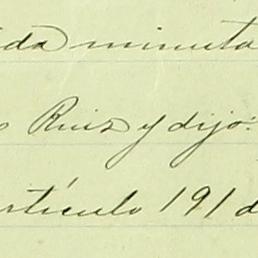 ida minuta
Ruiz y dijo:
artículo 191 d